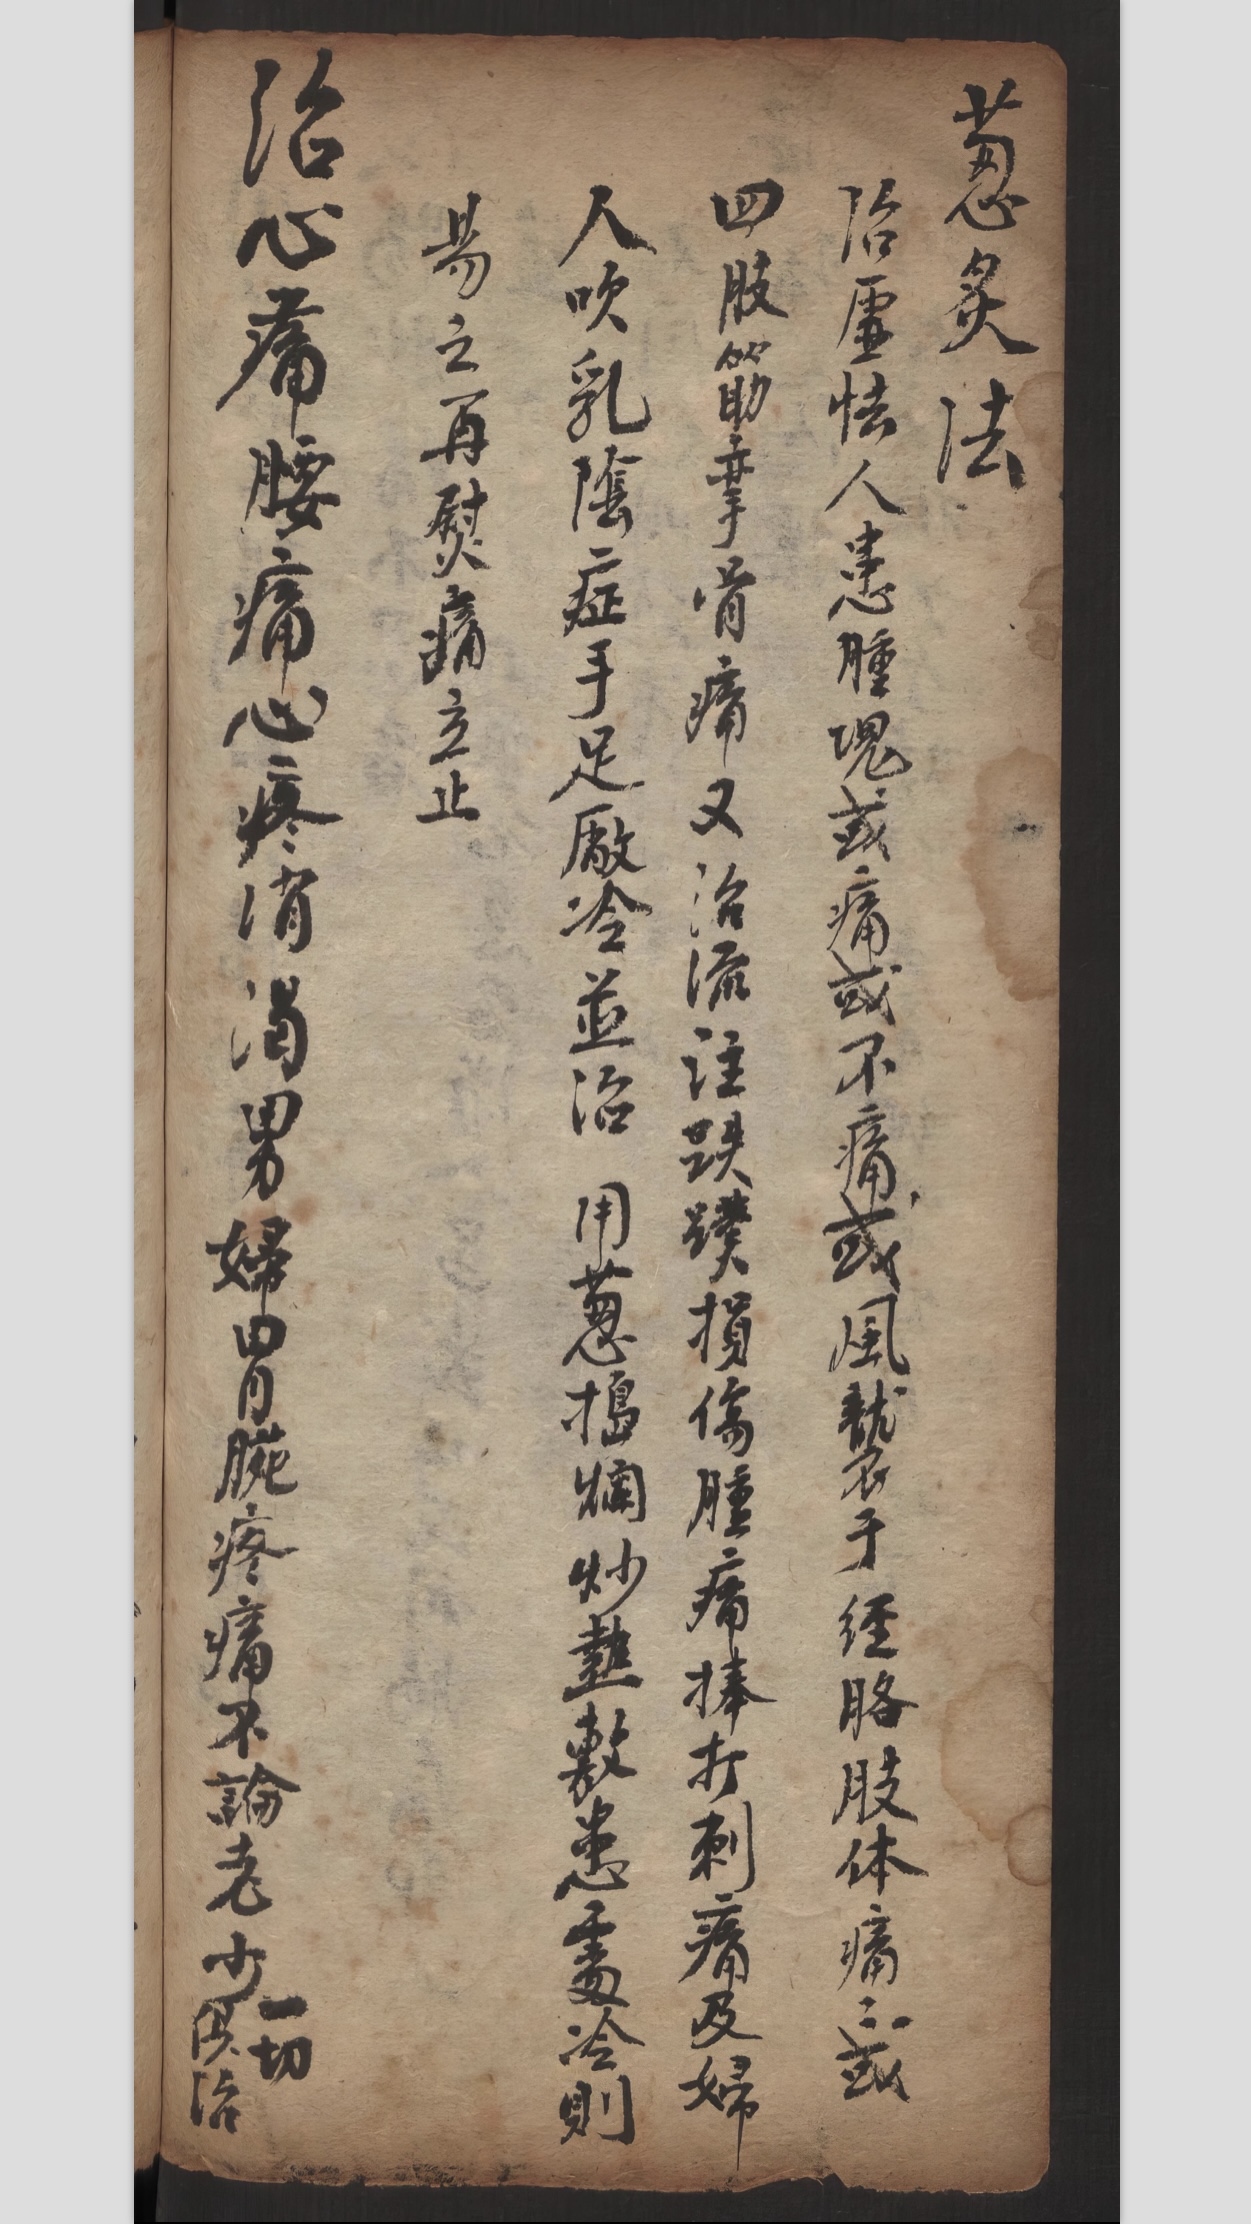 葱灸法
治虛怯人患腫塊或痛或不痛或風襲于經胳肢体痛二或
四肢筋牽骨痛又治流注跌蹼損傷腫痛捧打刺痛及婦
人吹乳陰症手足厥冷並治 用葱搗爛炒熱敷患處冷則
易之再熨痛立止
治心痛腰痛心疼消渴男婦胃腕疼痛不論老少一切俱治